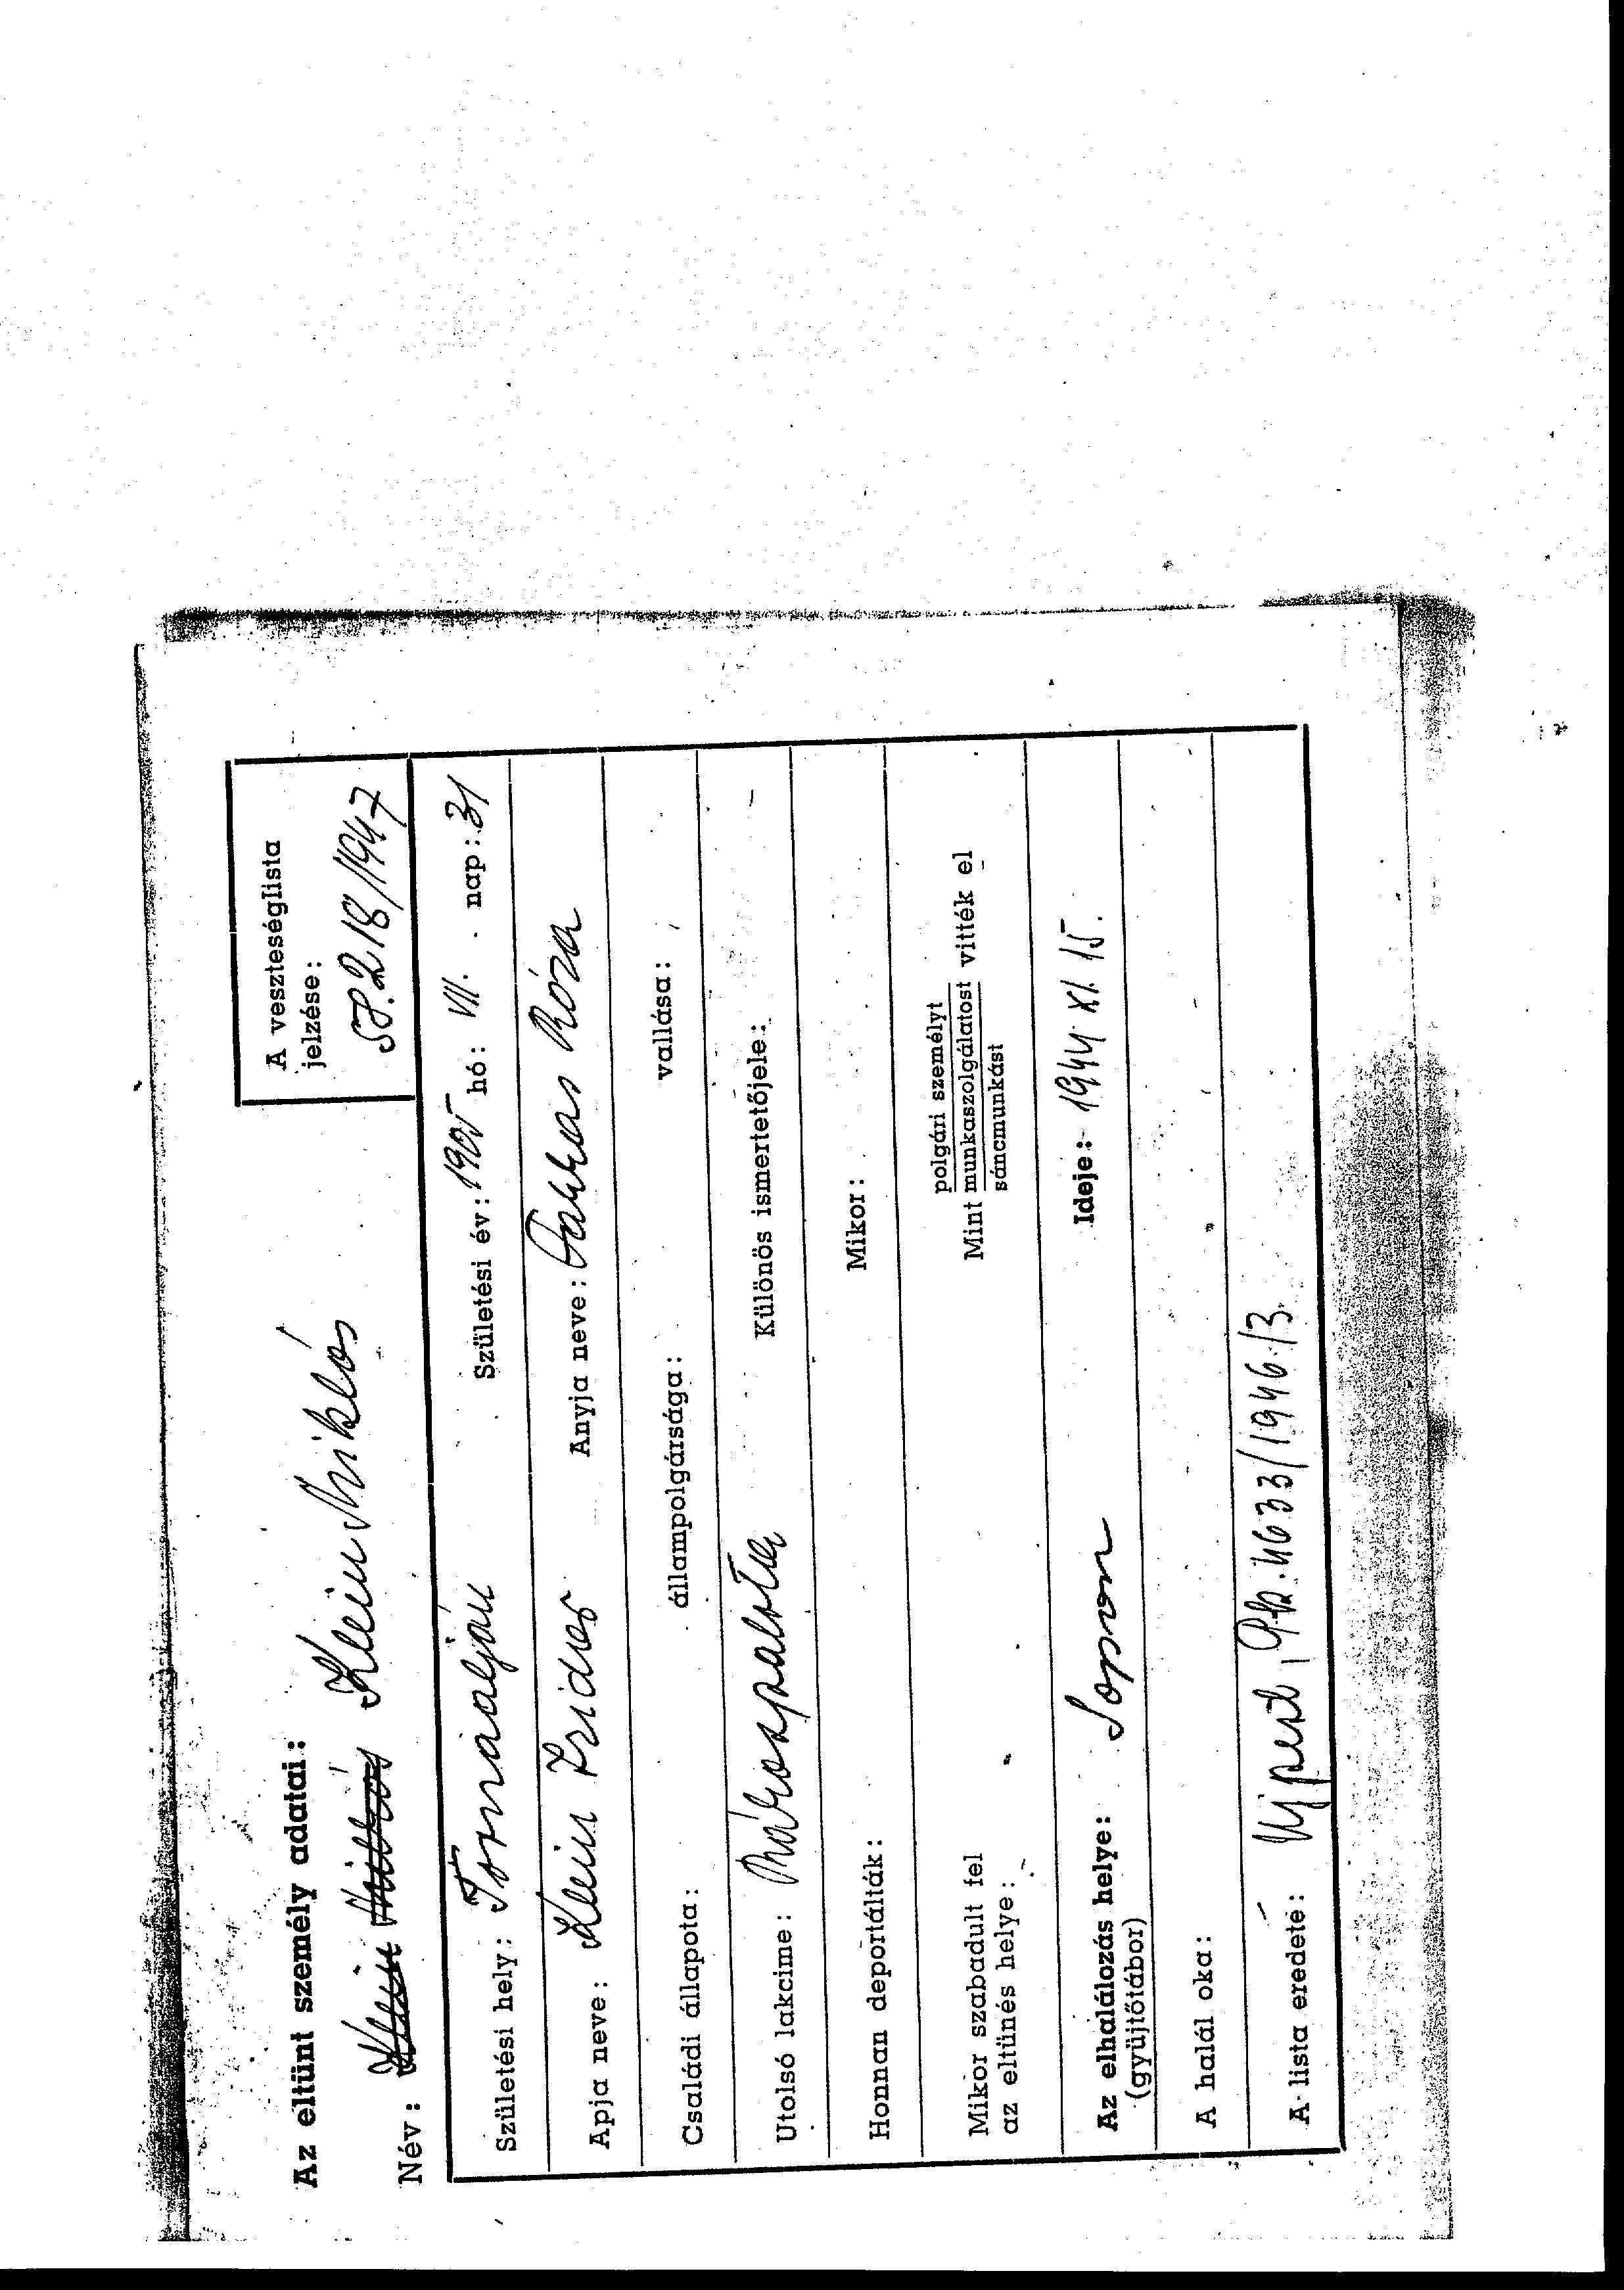 A veszteséglista
jelzése:
218/1947
Az eltünt személy adatai:
Név: Klein Miklós Klein Miklós
Születési hely: Tornaalján Születési év: 1905 hó: VII. nap: 31
Apja neve: Klein Izidor Anyja neve: Farkas Róza
Családi állapota: állampolgársága: vallása:
Utolsó lakcime: Rákospalota Különös ismertetőjele:
Honnan deportálták: Mikor:
Mikor szabadult fel
az eltünés helye:
polgári személyt
Mint munkaszolgálatost vitték el
sáncmunkást
Az elhalálozás helye: Sopron Ideje: 1944 XI. 15.
(gyüjtőtábor)
A halál oka:
A lista eredete: Ujpest, Pk. 4633/1946/3.